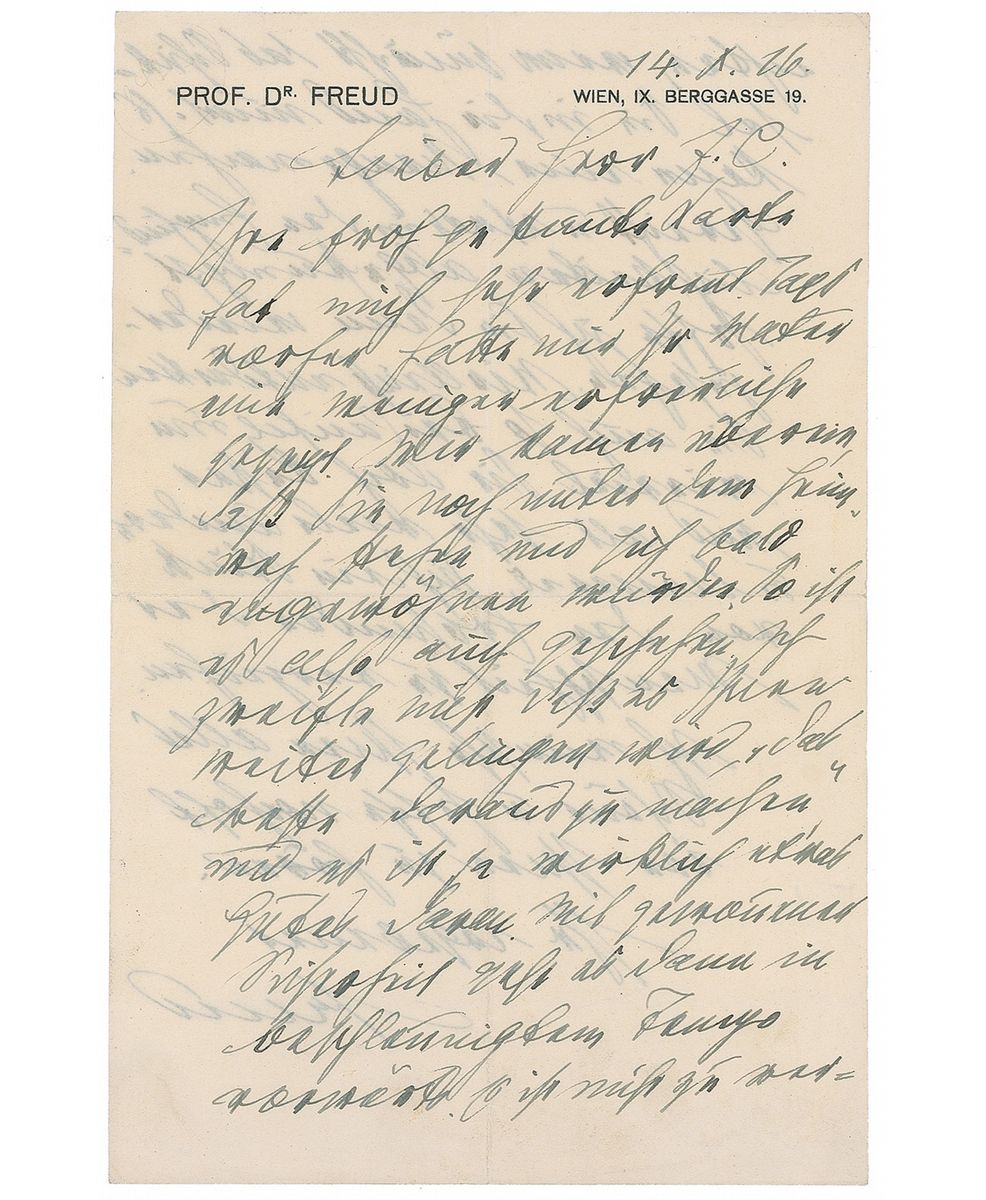 14. X. 26.
PROF. DR. FREUD WIEN, IX. BERGGASSE 19.
Lieber Herr J. C.
Ihre froh ge Karte
hat mich sehr erfreut. Tags
vorher hatte mir Ihr Vater
eine weniger erfreuliche
gezeigt. Wir kamen überein,
daß Sie noch unter dem Heim-
weh stehen und sich bald
eingewöhnen würden. So ist
es also auch geschehen. Ich
zweifle nicht daß es Ihnen
weiter gelingen wird, „das
beste daraus zu machen“
und es ist ja wirklich etwas
Gutes daran. Mit gewonnener
Sicherheit geht es dann in
beschleunigtem Tempo
vorwärts. Es ist nicht zu ver=